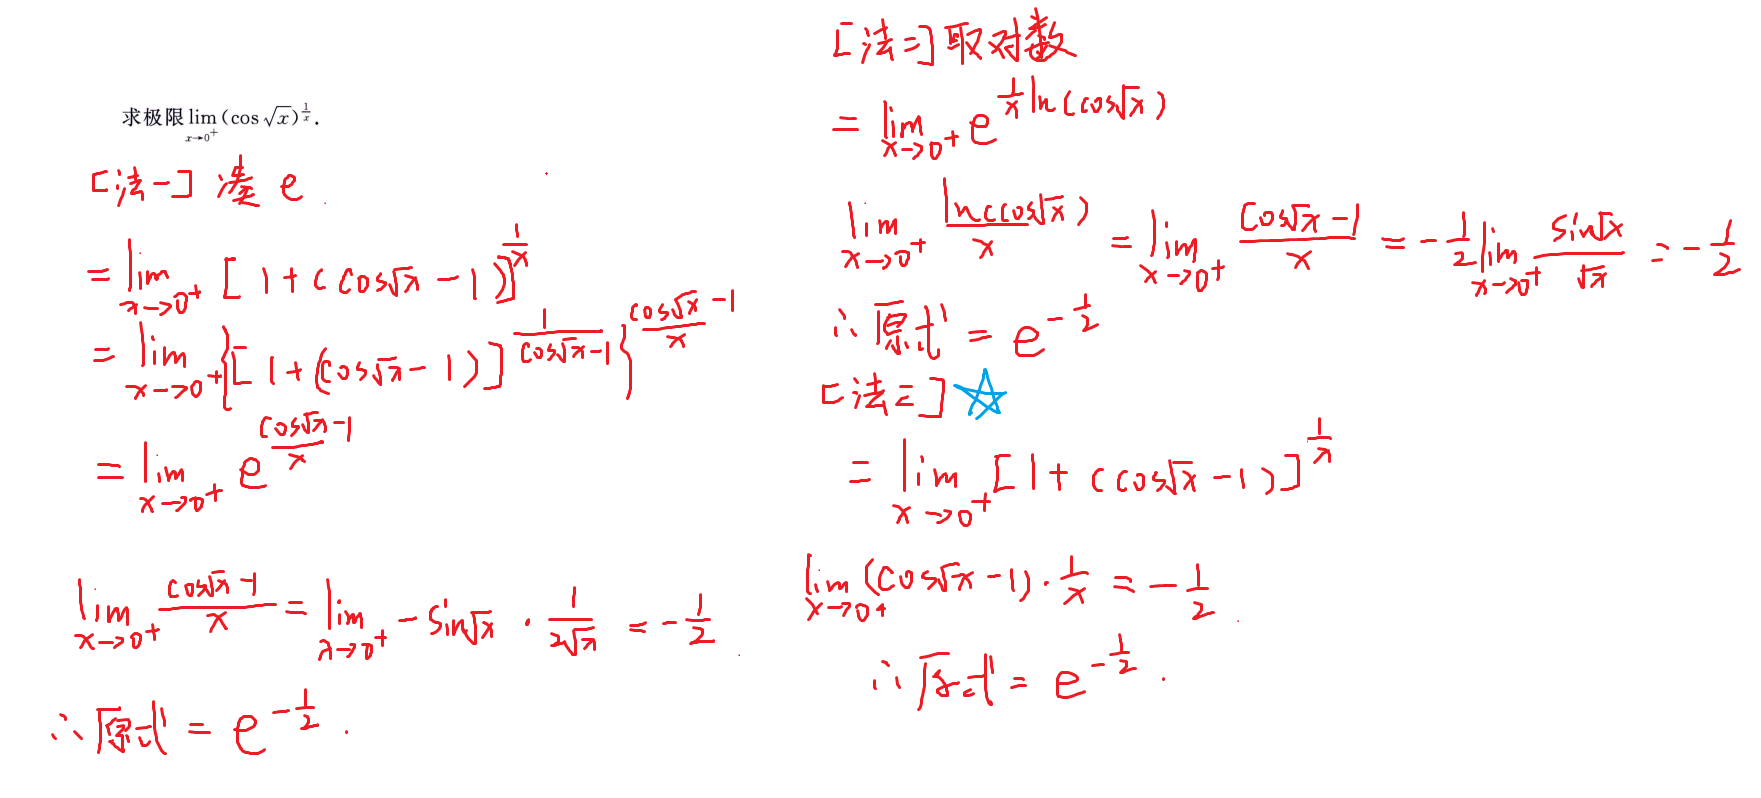 求极限 lim_{x→0⁺} (cos √x)^{1/x}.
[法一] 凑 e
= lim_{x→0⁺} [1+(cos√x−1)]^{1/x}
= lim_{x→0⁺} {[1+(cos√x−1)]^{1/(cos√x−1)}}^{(cos√x−1)/x}
= lim_{x→0⁺} e^{(cos√x−1)/x}
lim_{x→0⁺} (cos√x−1)/x = lim_{x→0⁺} −sin√x · 1/(2√x) = −1/2
∴ 原式 = e^{−1/2}.
[法二] 取对数
= lim_{x→0⁺} e^{(1/x) ln(cos√x)}
lim_{x→0⁺} ln(cos√x)/x = lim_{x→0⁺} (cos√x−1)/x = −1/2 lim_{x→0⁺} sin√x/√x = −1/2
∴ 原式 = e^{−1/2}
[法三] ☆
= lim_{x→0⁺} [1+(cos√x−1)]^{1/x}
lim_{x→0⁺} (cos√x−1)·1/x = −1/2
∴ 原式 = e^{−1/2}.